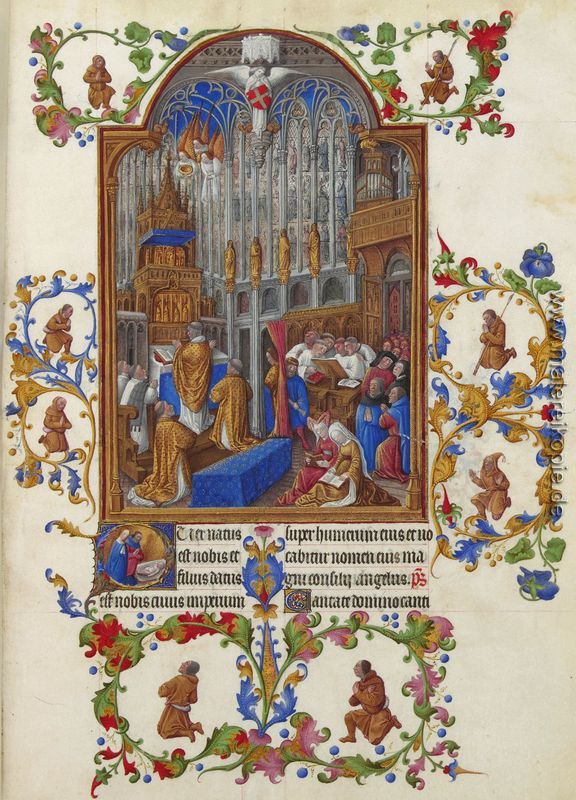 Puer natus
est nobis et
filius datus
est nobis cuius imperium
super humerum eius et uo
cabitur nomen eius ma
gni consilij angelus. ps
Cantate domino canti
www.malereikopie.de